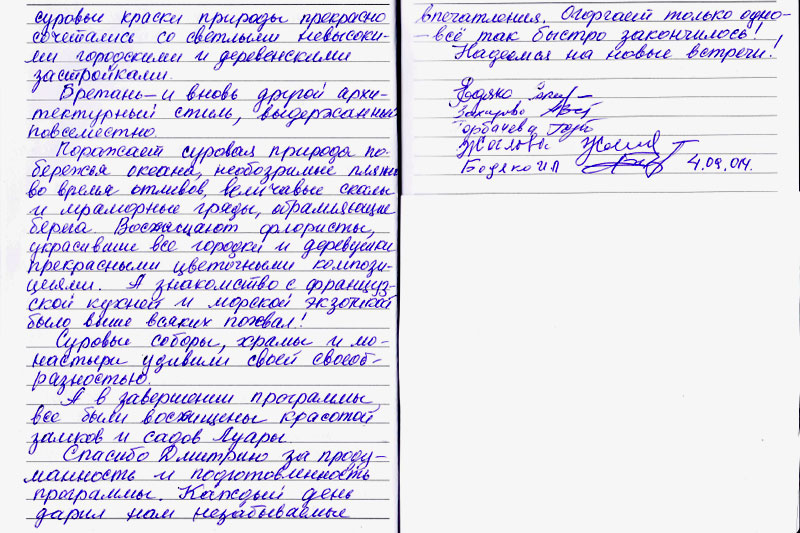 суровые краски природы прекрасно
сочетались со светлыми невысоки-
ми городскими и деревенскими
застройками.
Бретань – и вновь другой архи-
тектурный стиль, выдержанный
повсеместно.
Поражает суровая природа по-
бережья океана, необозримые пляжи
во время отливов, величавые скалы
и мраморные гряды, обрамляющие
берега. Восхищают флористы,
украсившие все городки и деревушки
прекрасными цветочными компози-
циями. А знакомство с француз-
ской кухней и морской экзотикой
было выше всяких похвал!
Суровые соборы, храмы и мо-
настыри удивили своей своеоб-
разностью.
А в завершении программы
все были восхищены красотой
замков и садов Луары.
Спасибо Дмитрию за проду-
манность и подготовленность
программы. Каждый день
дарил нам незабываемые
впечатления. Огорчает только одно-
– всё так быстро закончилось!
Надеемся на новые встречи!
Бодяко
Захарова
Горбачева
Бодяко И П 4.09.04г.